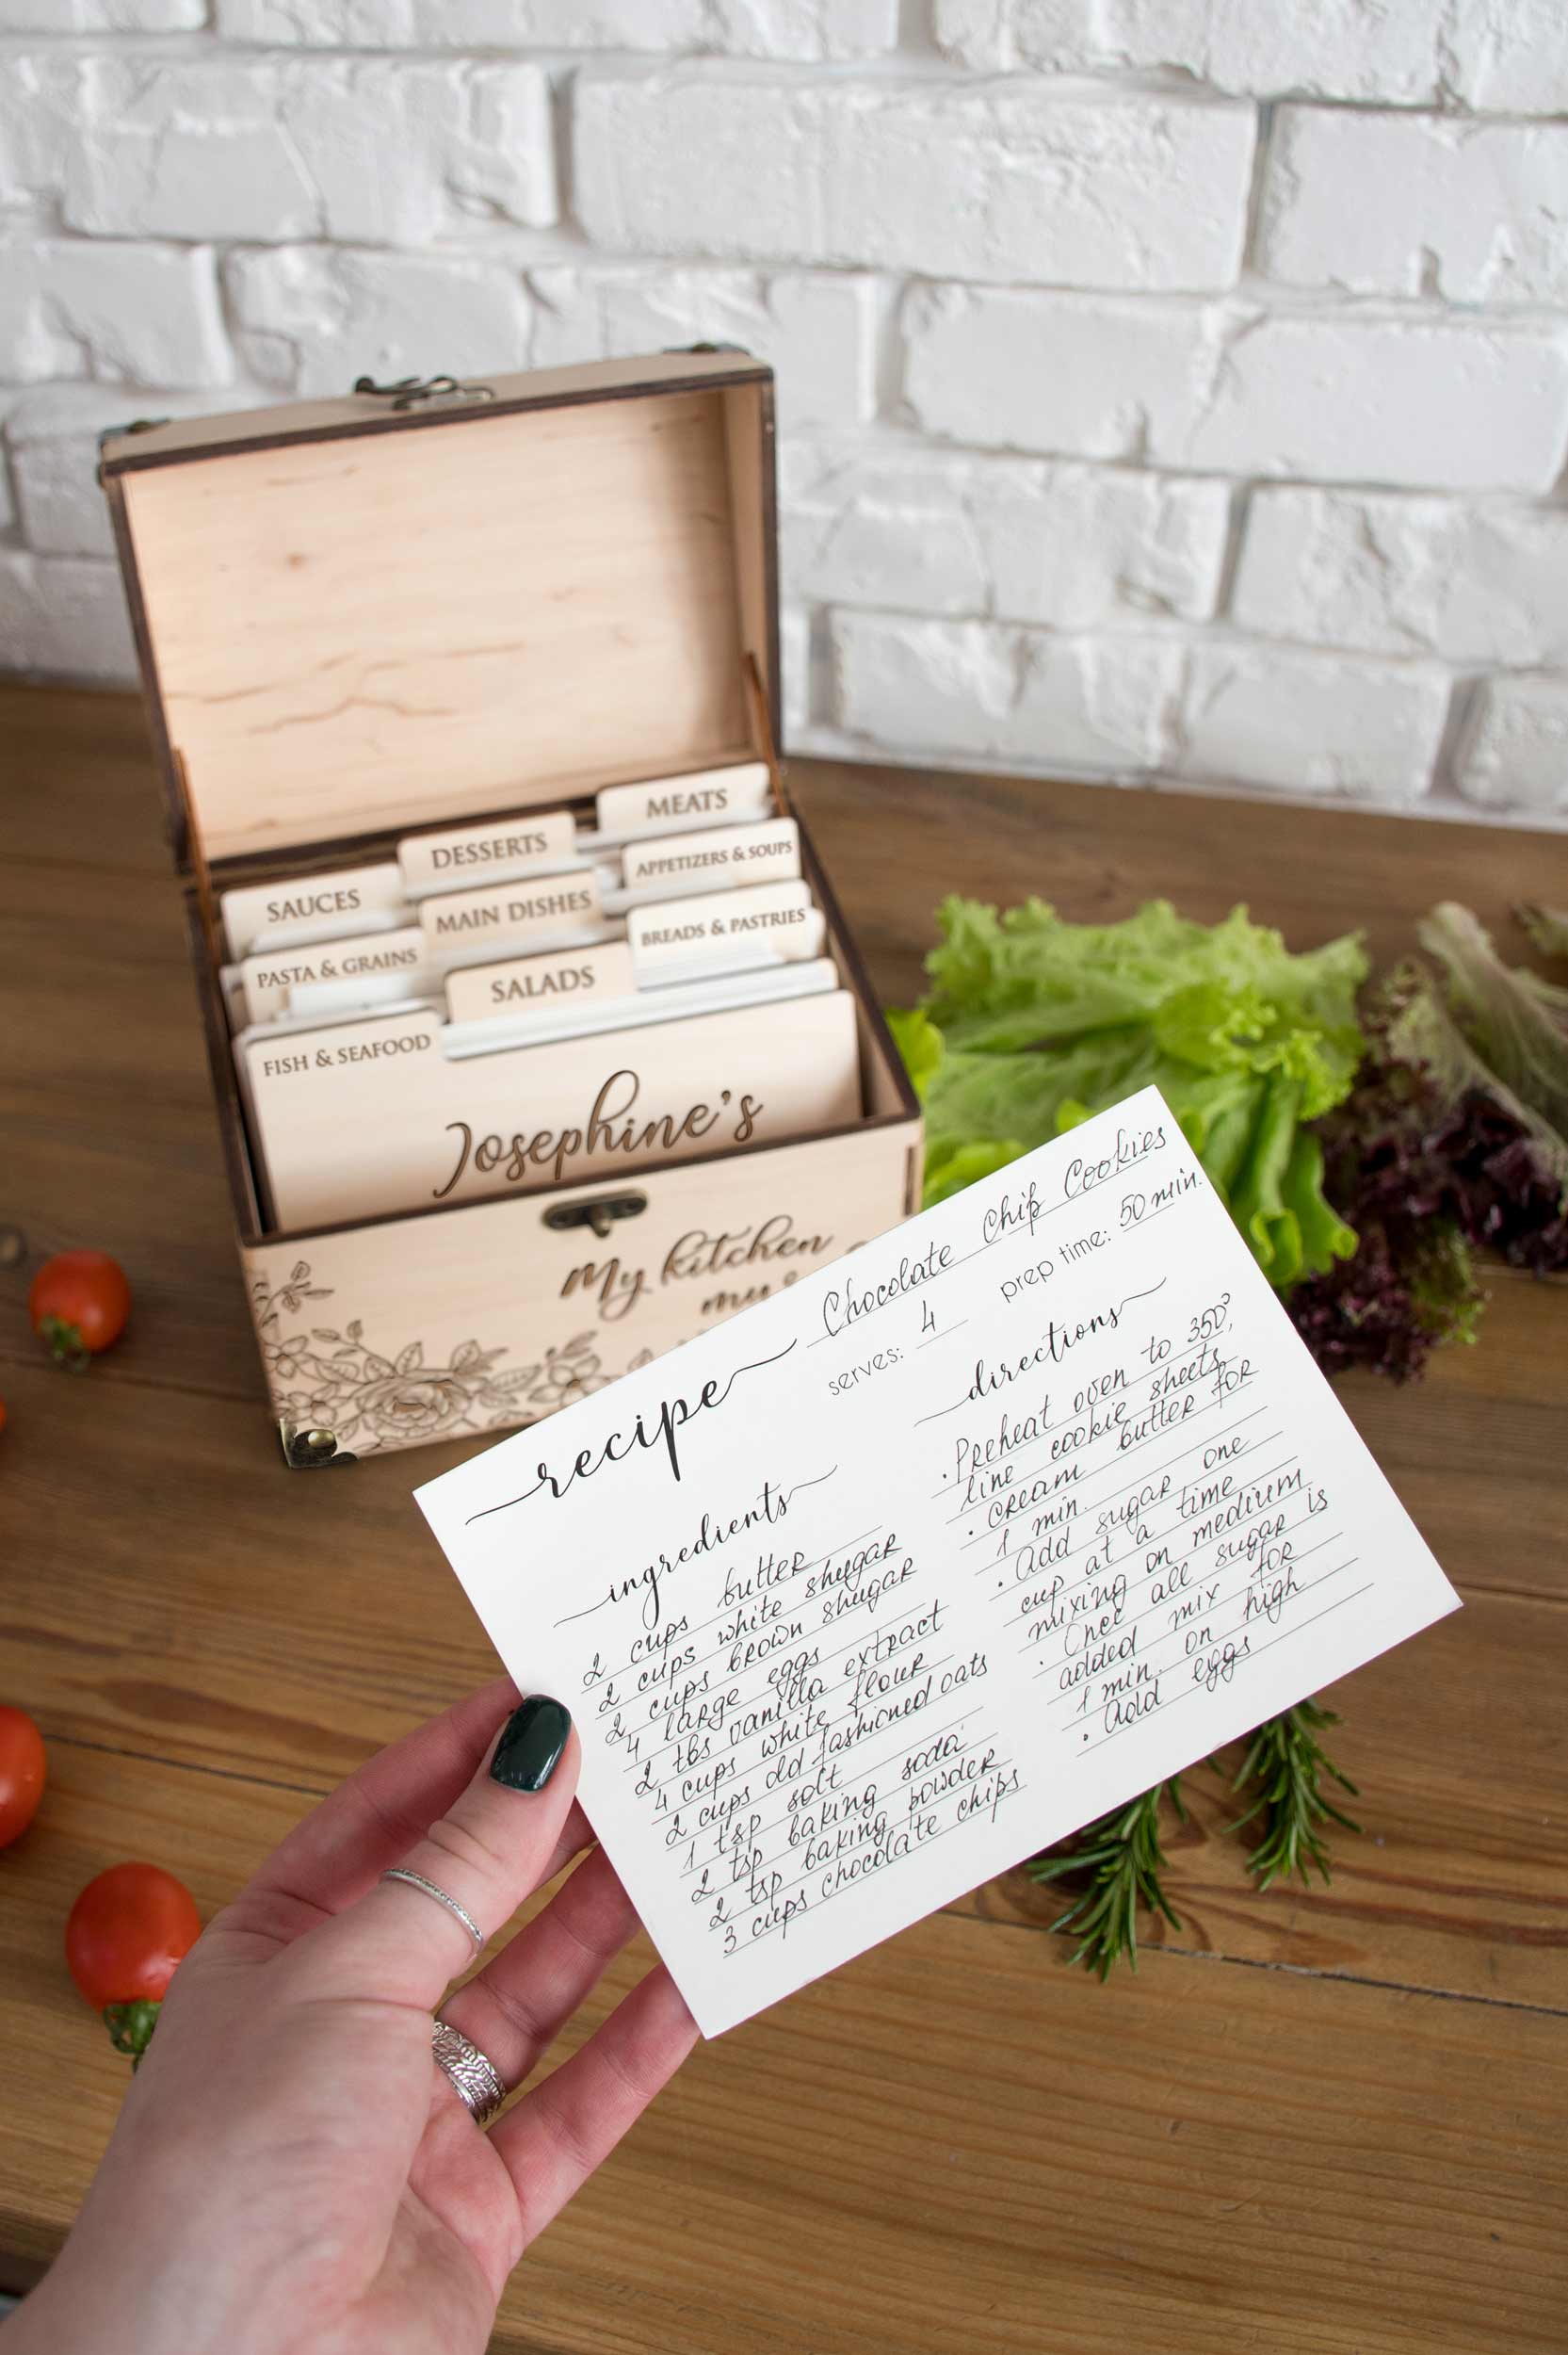 MEATS
DESSERTS
APPETIZERS & SOUPS
SAUCES
MAIN DISHES
BREADS & PASTRIES
PASTA & GRAINS
SALADS
FISH & SEAFOOD
Josephine's
My kitchen
recipe Chocolate Chip Cookies
serves: 4 prep time: 50 min.
ingredients
2 cups butter
2 cups white shugar
2 cups brown shugar
4 large eggs
2 tbs vanilla extract
4 cups white flour
2 cups old fashioned oats
1 tsp solt
2 tsp baking soda
2 tsp baking powder
3 cups chocolate chips
directions
· Preheat oven to 350°,
line cookie sheets
· cream butter for
1 min.
· Add sugar one
cup at a time
mixing on medium
· Once all sugar is
added mix for
1 min. on high
· Add eggs